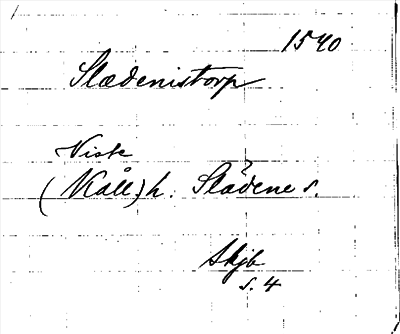 1540
Slædenistorp
Viste
(Kåll) h. Slädene s.
Skjb
s. 4